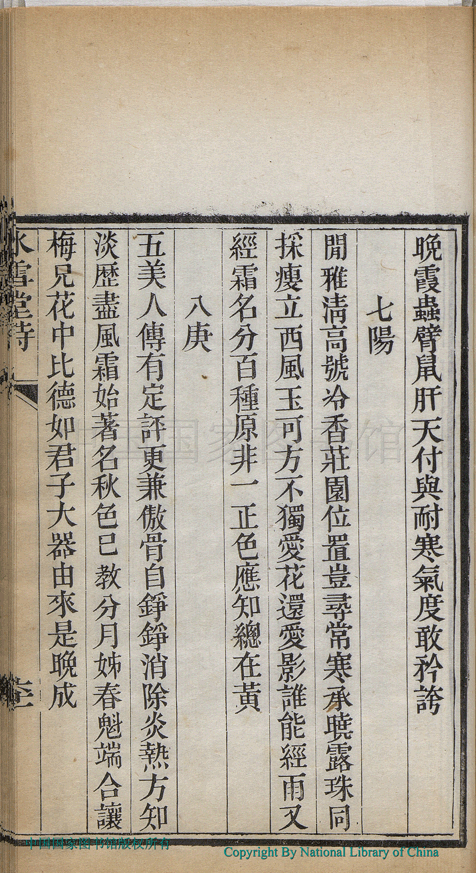 晚霞蟲臂鼠肝天付與耐寒氣度敢矜誇
七陽
閒雅淸高號冷香莊園位置豈尋常寒承曉露珠同
採瘦立西風玉可方不獨愛花還愛影誰能經雨又
經霜名分百種原非一正色應知總在黃
八庚
五美人傳有定評更兼傲骨自錚錚消除炎熱方知
淡歷盡風霜始著名秋色已教分月姊春魁端合讓
梅兄花中比德如君子大器由來是晚成
冰雪堂詩
中国国家图书馆
中国国家图书馆版权所有
Copyright By National Library of China